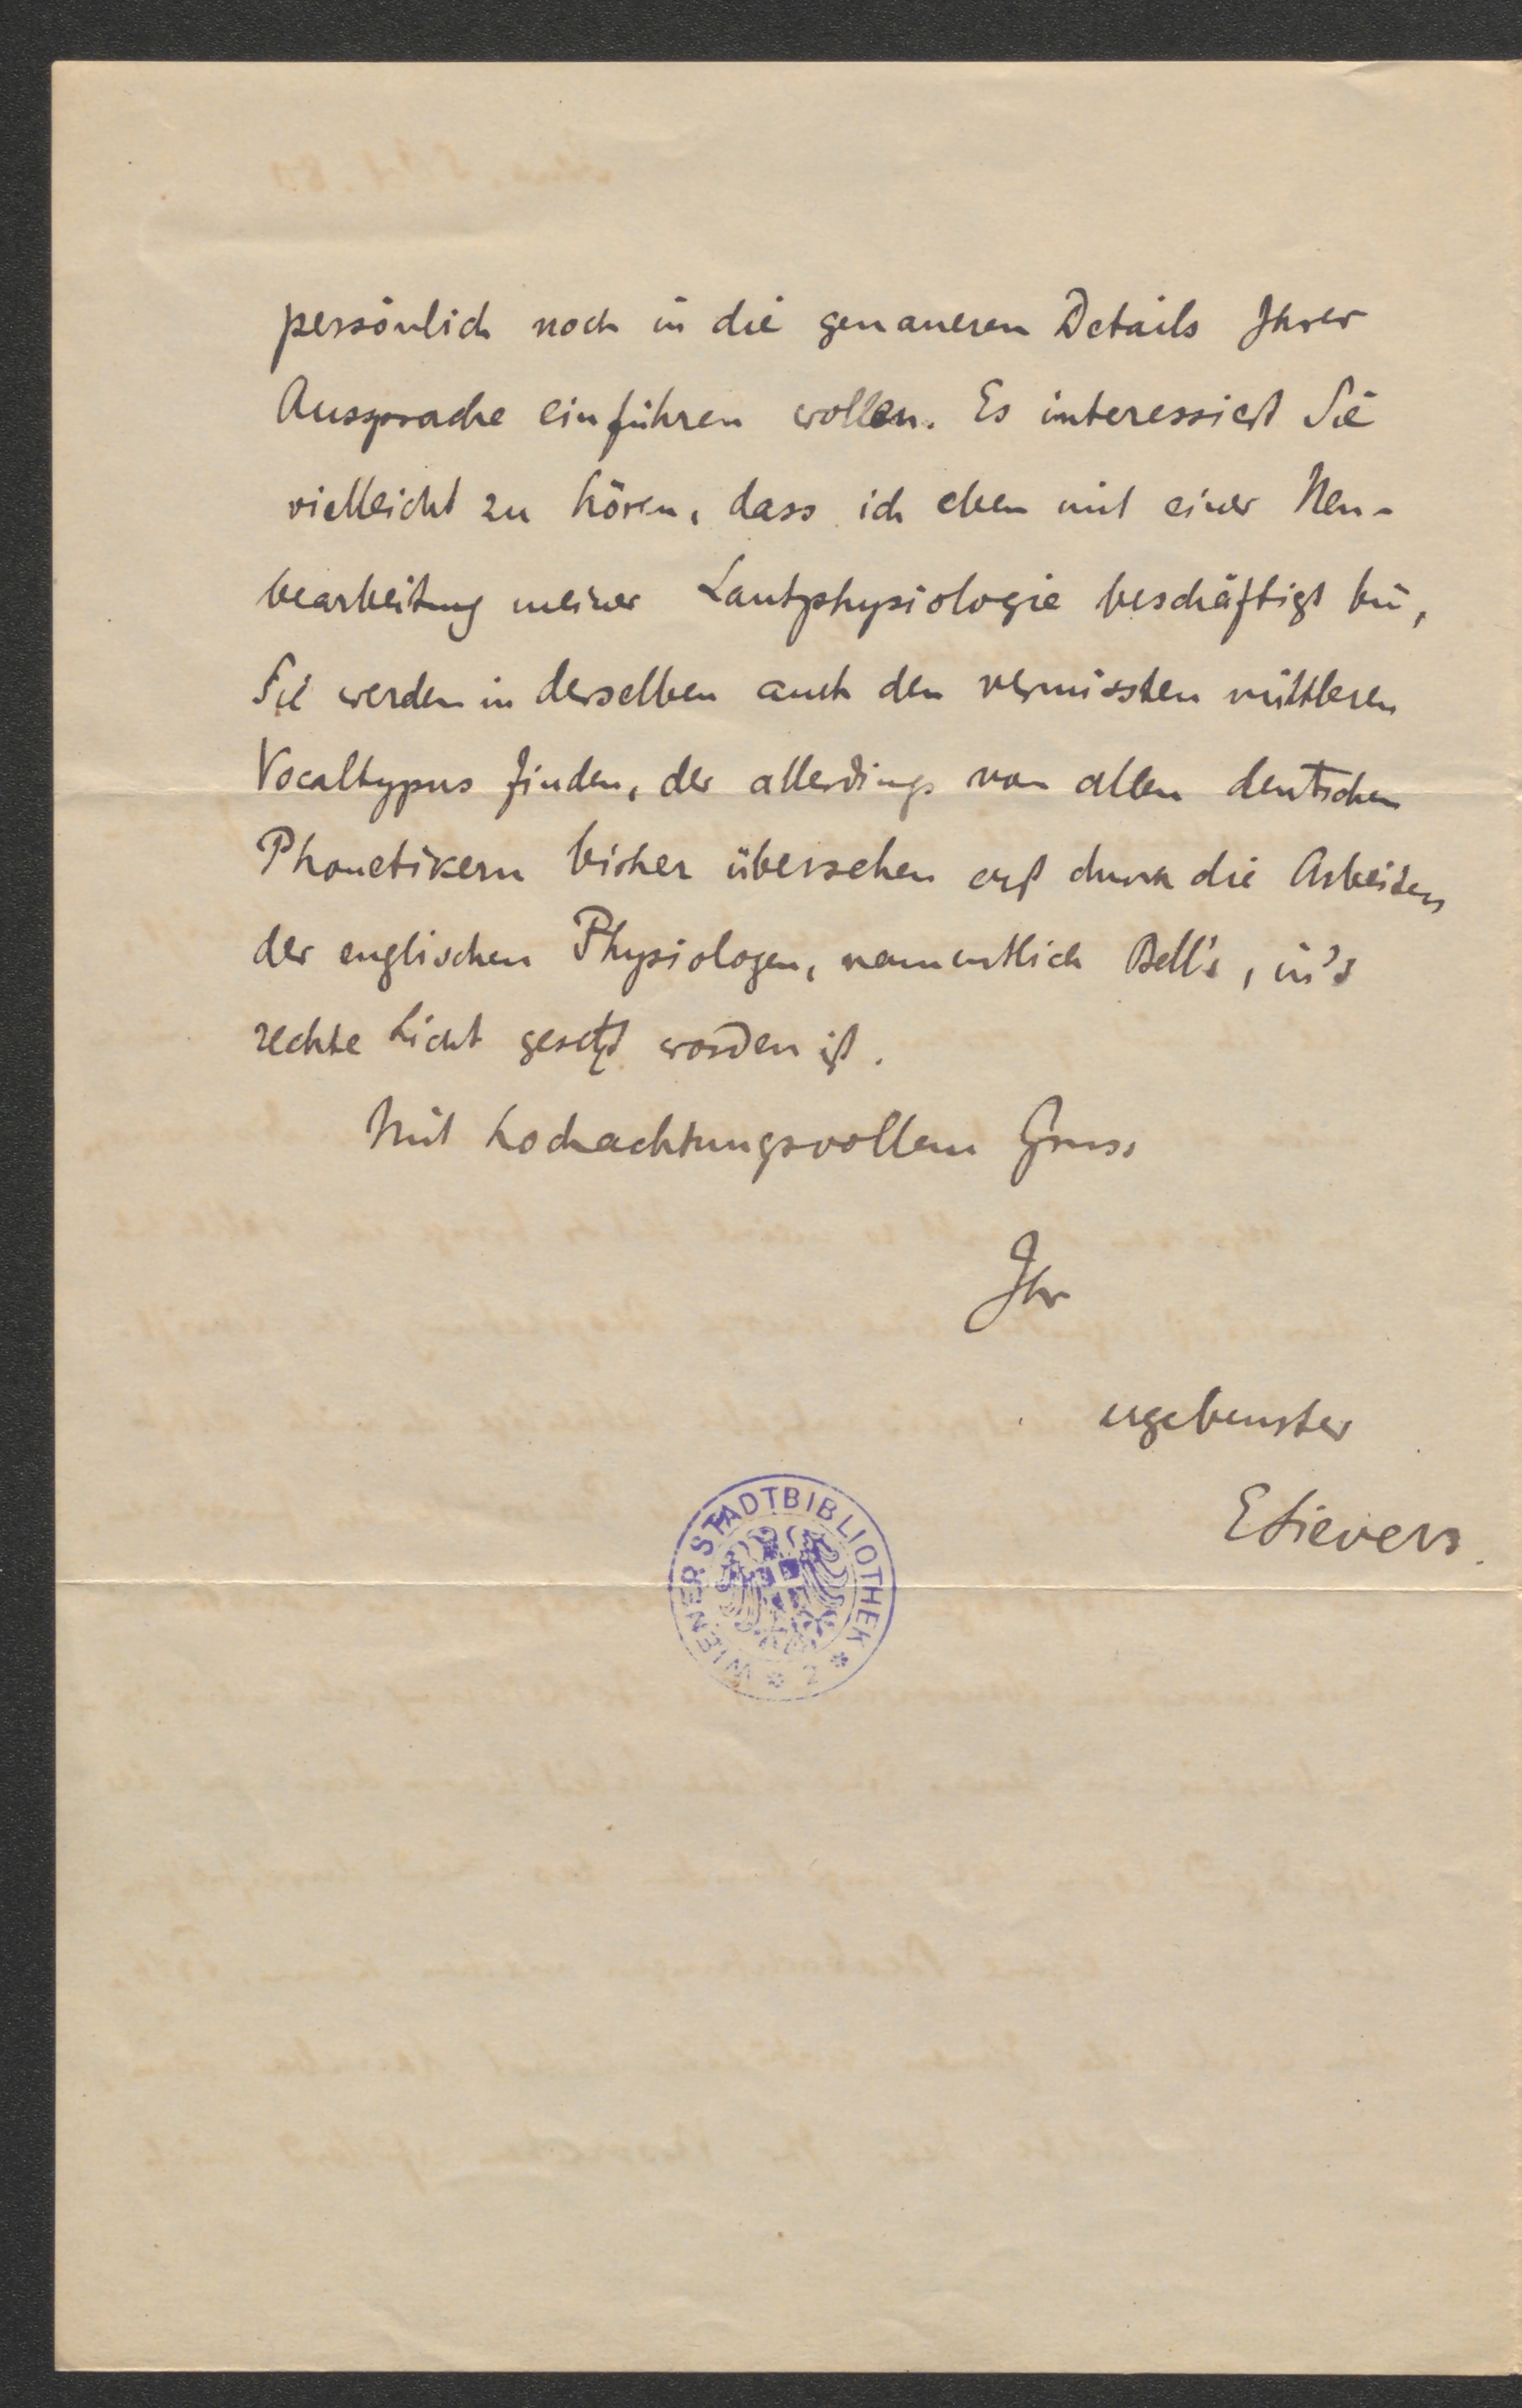 persönlich noch in die genaueren Details Ihrer
Aussprache einführen wollen. Es interessiert Sie
vielleicht zu hören, dass ich eben mit einer Neu-
bearbeitung meiner Lautphysiologie beschäftigt bin,
Sie werden in derselben auch den vermissten mittleren
Vocaltypus finden, der allerdings von allen deutschen
Phonetikern bisher übersehen erst durch die Arbeiten
der englischen Physiologen, namentlich Bell's, in's
rechte Licht gesetzt worden ist.
Mit hochachtungsvollem Gruss
Ihr
ergebenster
ESievers.
WIENER STADTBIBLIOTHEK * 2 *